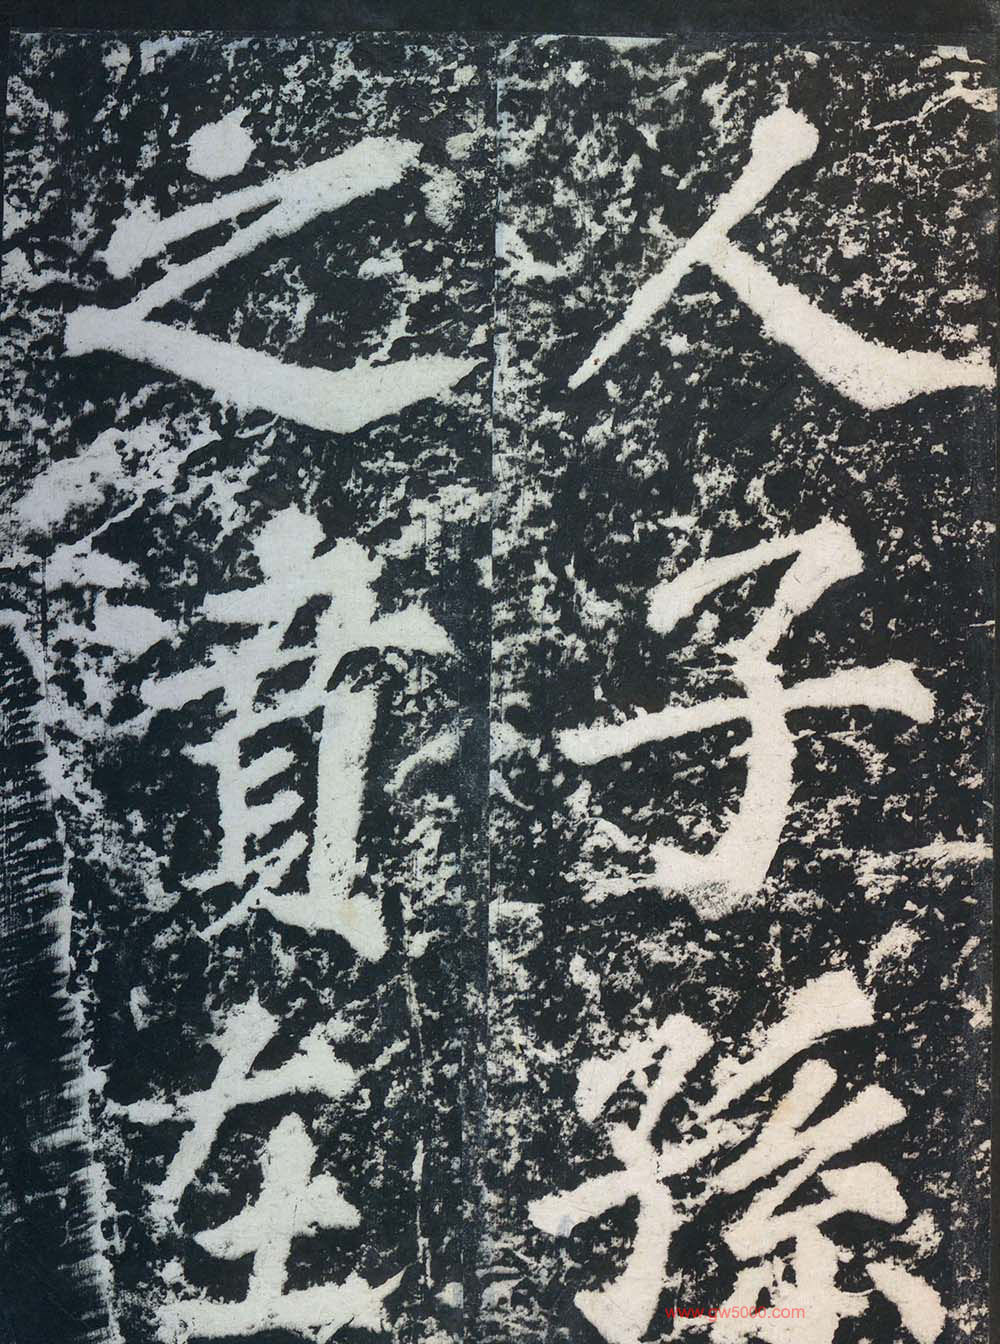 人子孫
之貴在
www.gw5000.com